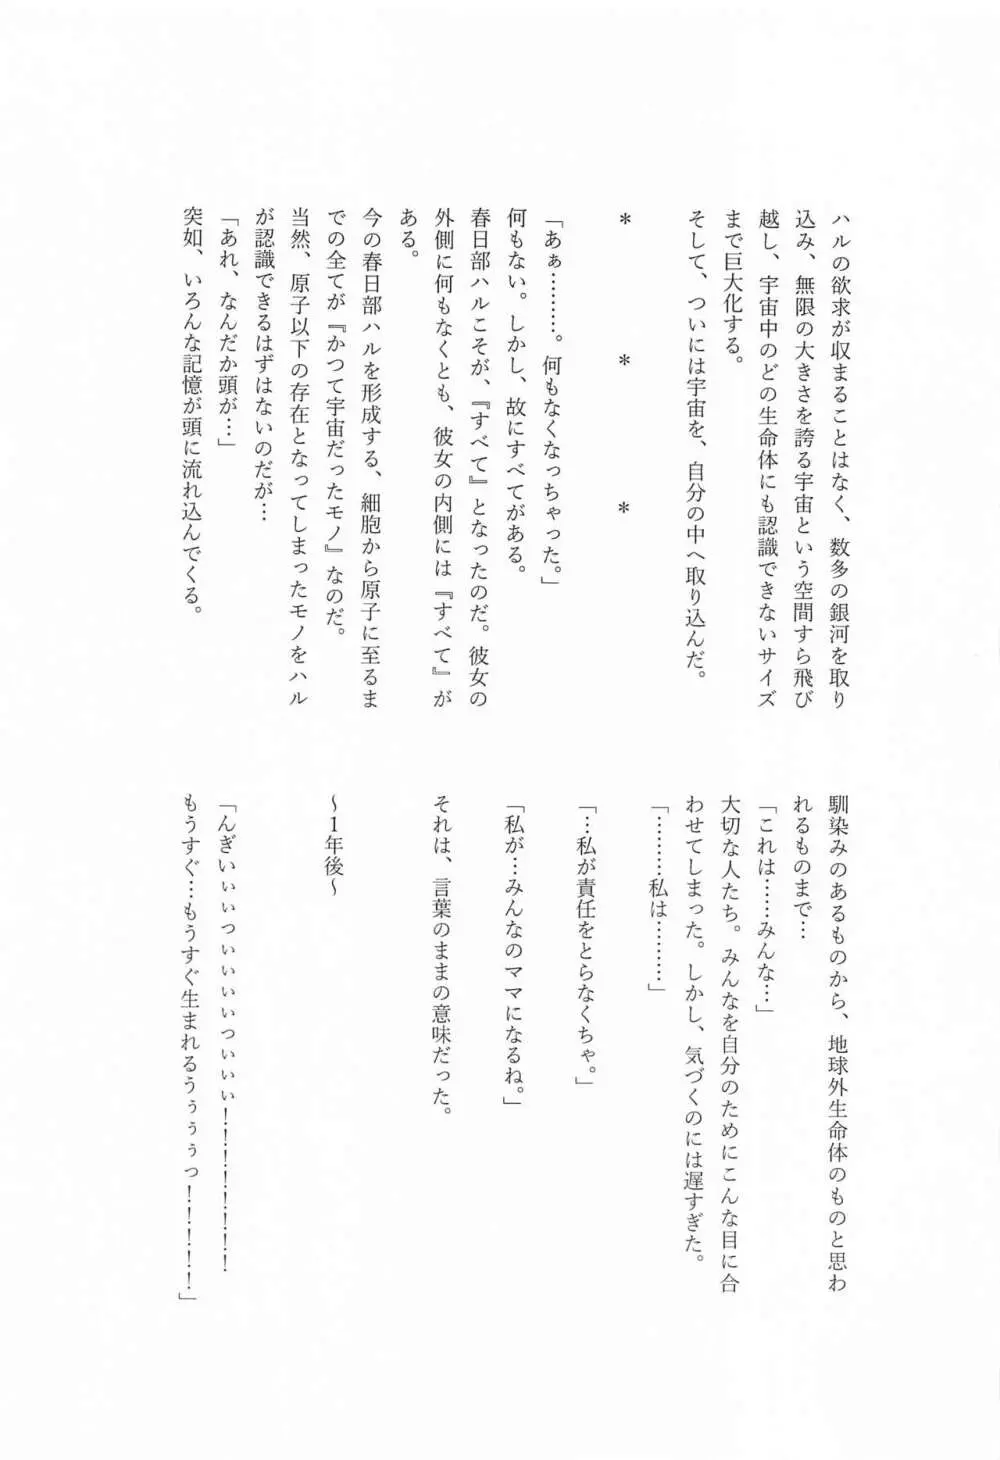 ハルの欲求が収まることはなく、数多の銀河を取り
込み、無限の大きさを誇る宇宙という空間すら飛び
越し、宇宙中のどの生命体にも認識できないサイズ
まで巨大化する。
そして、ついには宇宙を、自分の中へ取り込んだ。
＊　＊　＊
「あぁ………。何もなくなっちゃった。」
何もない。しかし、故にすべてがある。
春日部ハルこそが、『すべて』となったのだ。彼女の
外側に何もなくとも、彼女の内側には『すべて』が
ある。
今の春日部ハルを形成する、細胞から原子に至るま
での全てが『かつて宇宙だったモノ』なのだ。
当然、原子以下の存在となってしまったモノをハル
が認識できるはずはないのだが…
「あれ、なんだか頭が…」
突如、いろんな記憶が頭に流れ込んでくる。
馴染みのあるものから、地球外生命体のものと思わ
れるものまで…
「これは……みんな…」
大切な人たち。みんなを自分のためにこんな目に合
わせてしまった。しかし、気づくのには遅すぎた。
「………私は………」
「…私が責任をとらなくちゃ。」
「私が…みんなのママになるね。」
それは、言葉のままの意味だった。
～1年後～
「んぎいぃぃっぃぃぃぃっぃぃぃ！！！！！！！！
もうすぐ…もうすぐ生まれるうぅぅぅっ！！！！！」